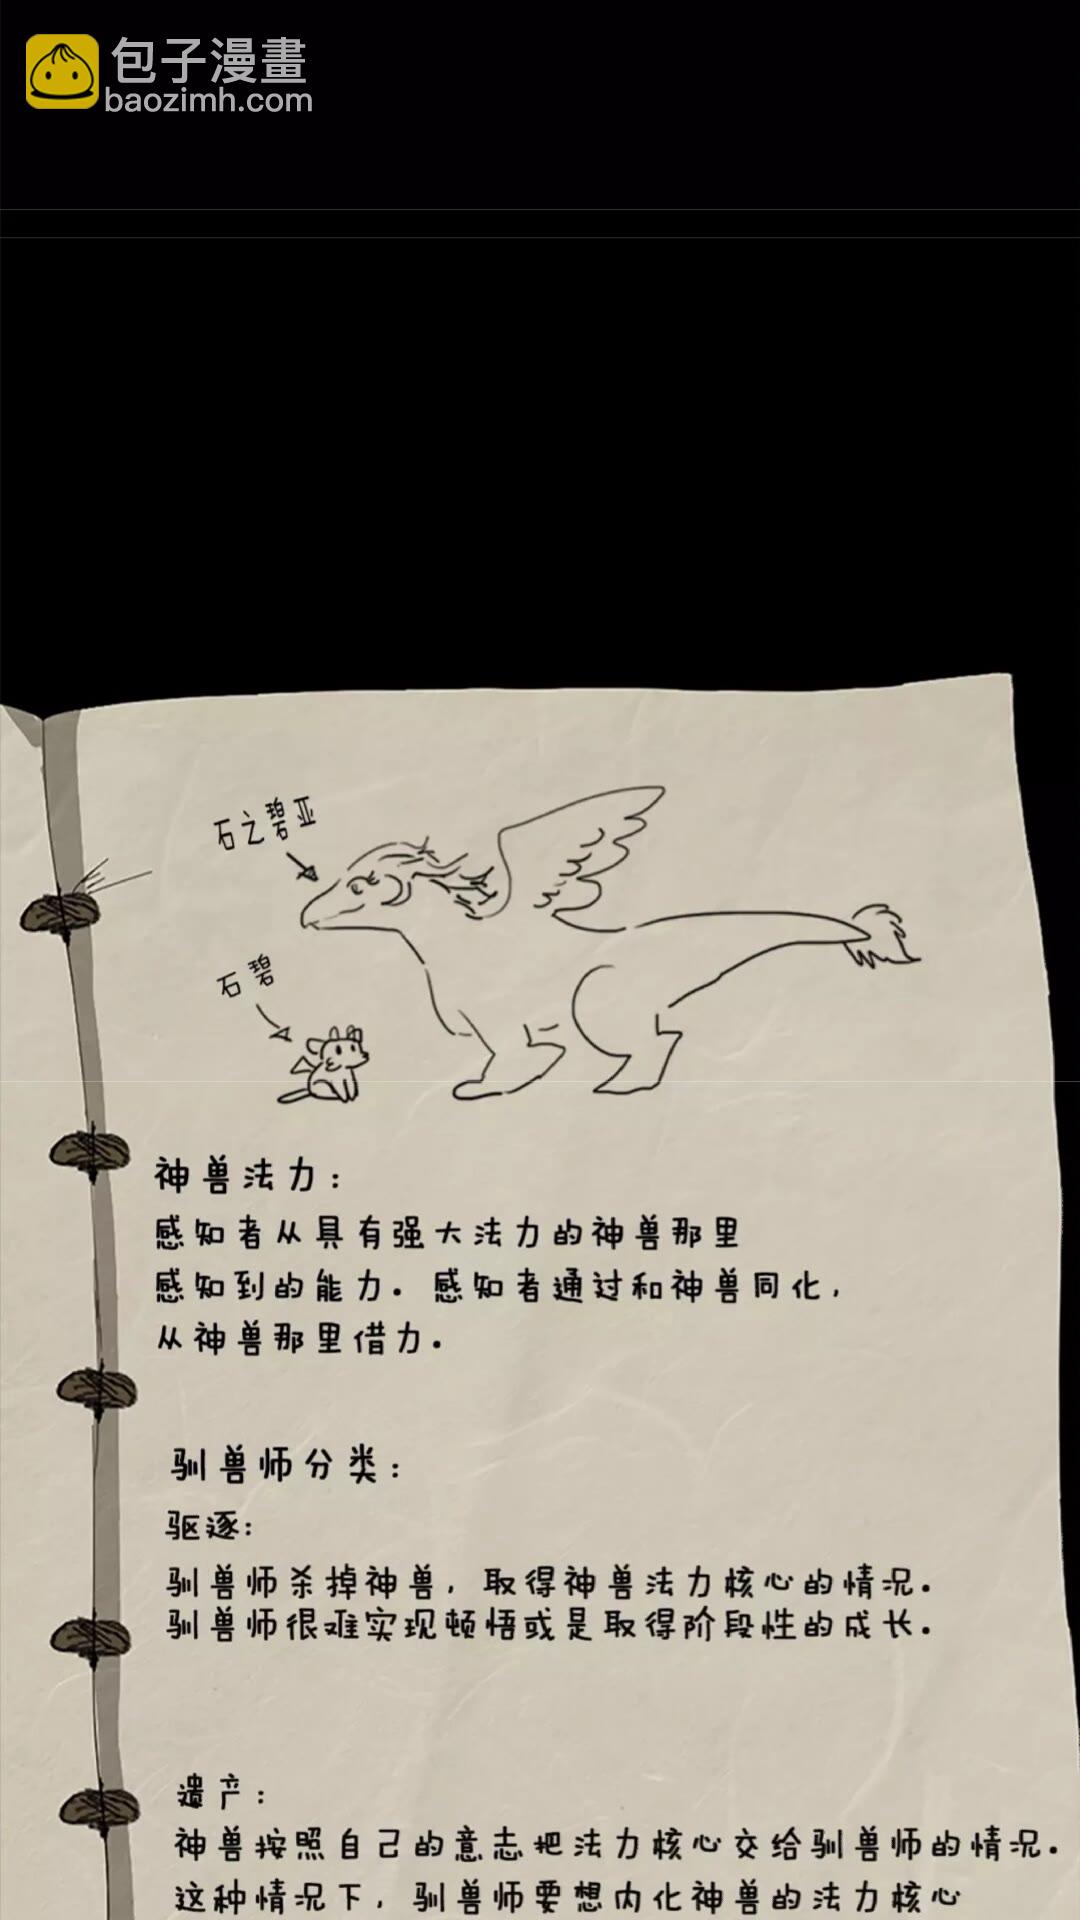 包子漫畫
baozimh.com
石之碧亚
石碧
神兽法力：
感知者从具有强大法力的神兽那里
感知到的能力. 感知者通过和神兽同化,
从神兽那里借力.
驯兽师分类：
驱逐：
驯兽师杀掉神兽, 取得神兽法力核心的情况.
驯兽师很难实现顿悟或是取得阶段性的成长.
遗产：
神兽按照自己的意志把法力核心交给驯兽师的情况.
这种情况下, 驯兽师要想内化神兽的法力核心